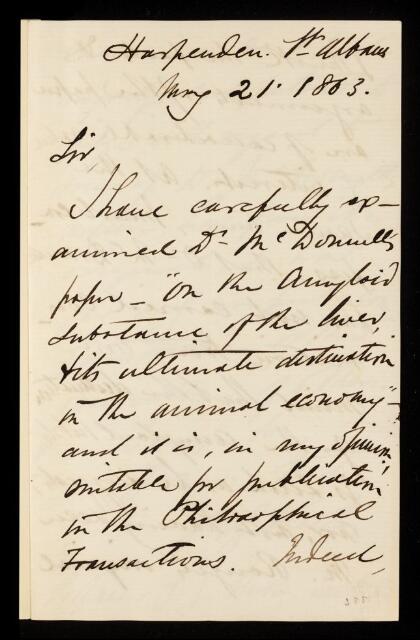 Harpenden. St. Albans
May 21. 1863.
Sir,
I have carefully ex-
amined Dr. McDonnell's
paper – "On the Amyloid
substance of the liver,
& its ultimate destination
in the animal economy" –
and it is, in my opinion
suitable for publication
in the Philosophical
Transactions. Indeed,